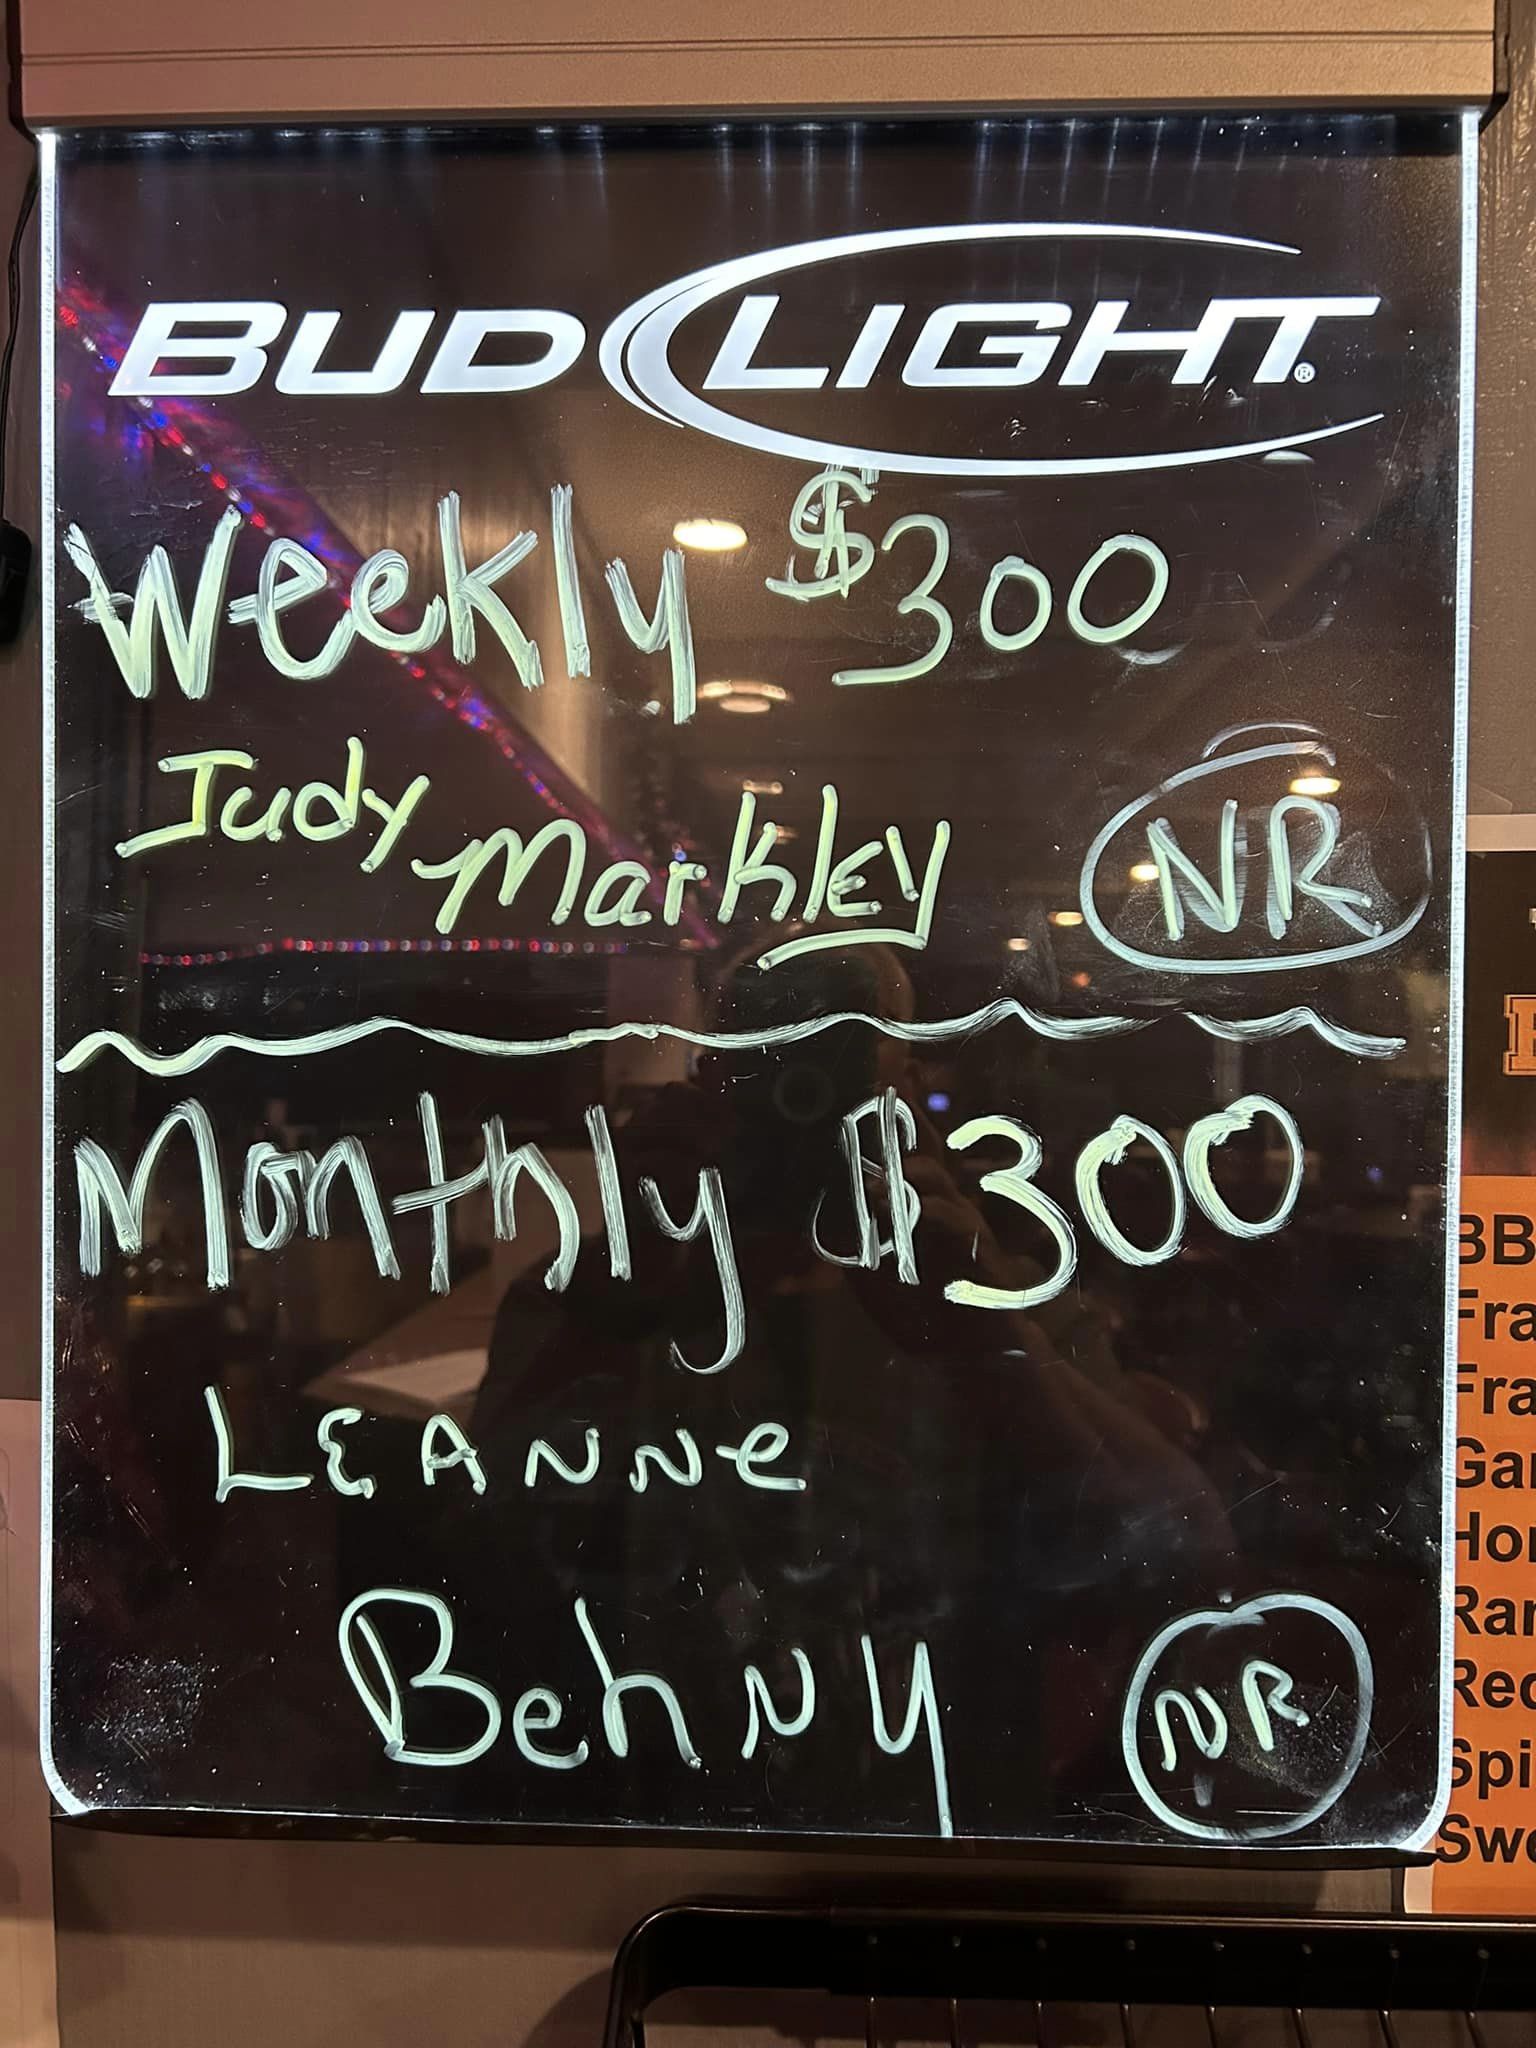 BUD LIGHT®
Weekly $300
Judy Markley NR
Monthly $300
LEANNe
Behny NR
BB
Fra
Fra
Gar
Hon
Ran
Red
Spi
Swe